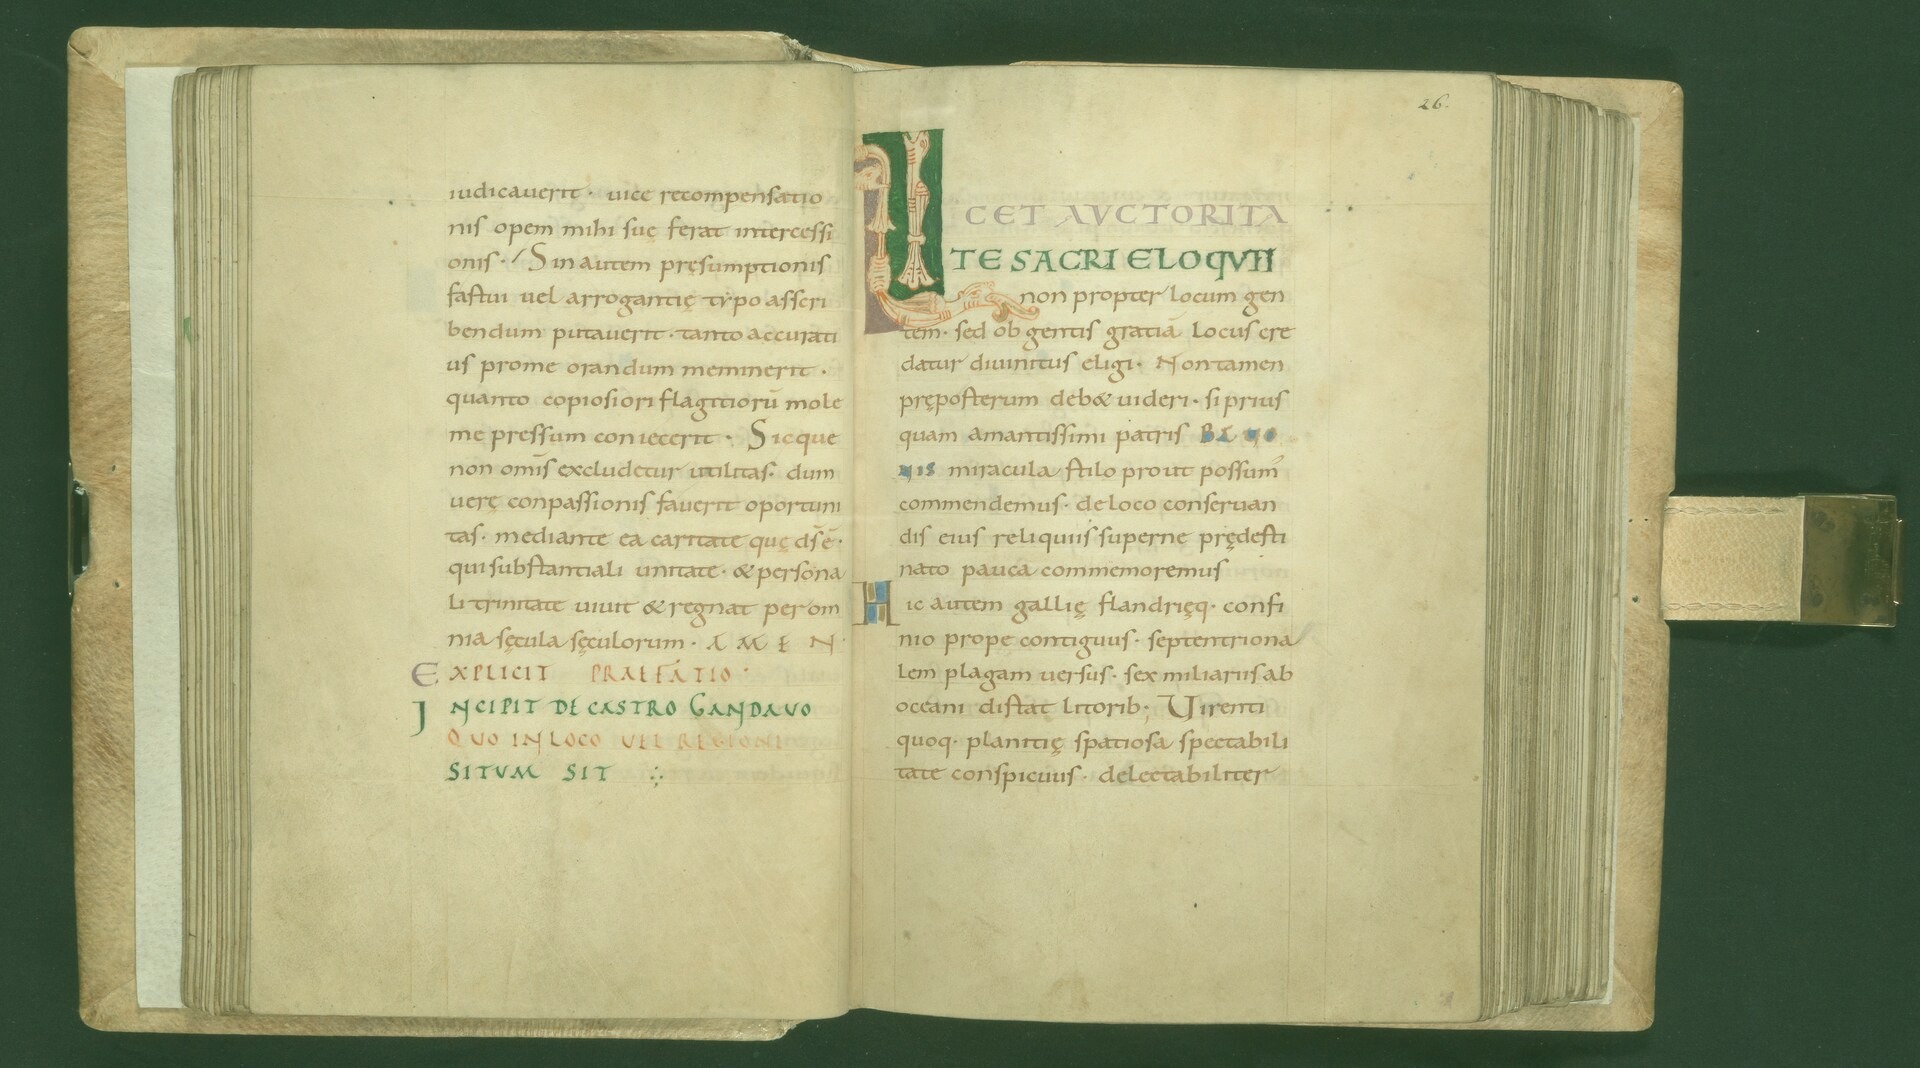 iudicauerit · uice recompensatio
nis opem mihi suę ferat intercessi
onis · / Sin autem pręsumptionis
fastui uel arrogantię typo asscri
bendum putauerit · tanto accurati
us pro me orandum meminerit ·
quanto copiosiori flagitiorū mole
me pressum coniecerit · Sicque
non omīs excludetur utilitas · dum
uerę conpassionis fauerit oportuni
tas · mediante ea caritate quę d̄s ē ·
qui substantiali unitate · & persona
li trinitate uiuit & regnat per om
nia sęcula sęculorum · AMEN ·
EXPLICIT PRAEFATIO ·
INCIPIT DE CASTRO GANDAVO
QUO IN LOCO VEL REGIONE
SITUM SIT
26.
LICET AVCTORITA
TE SACRI ELOQVII
non propter locum gen
tem · sed ob gentis gratiā locus cre
datur diuinitus eligi · Non tamen
pręposterum deb& uideri · si prius
quam amantissimi patris BAUO
NIS miracula stilo prout possum
commendemus · de loco conseruan
dis eius reliquiis superne prędesti
nato pauca commemoremus
Hic autem gallię flandrięq · confi
nio prope contiguus · septentriona
lem plagam uersus · sex miliariis ab
oceani distat litorib; Virenti
quoq · planitię spatiosa spectabili
tate conspicuus · delectabiliter